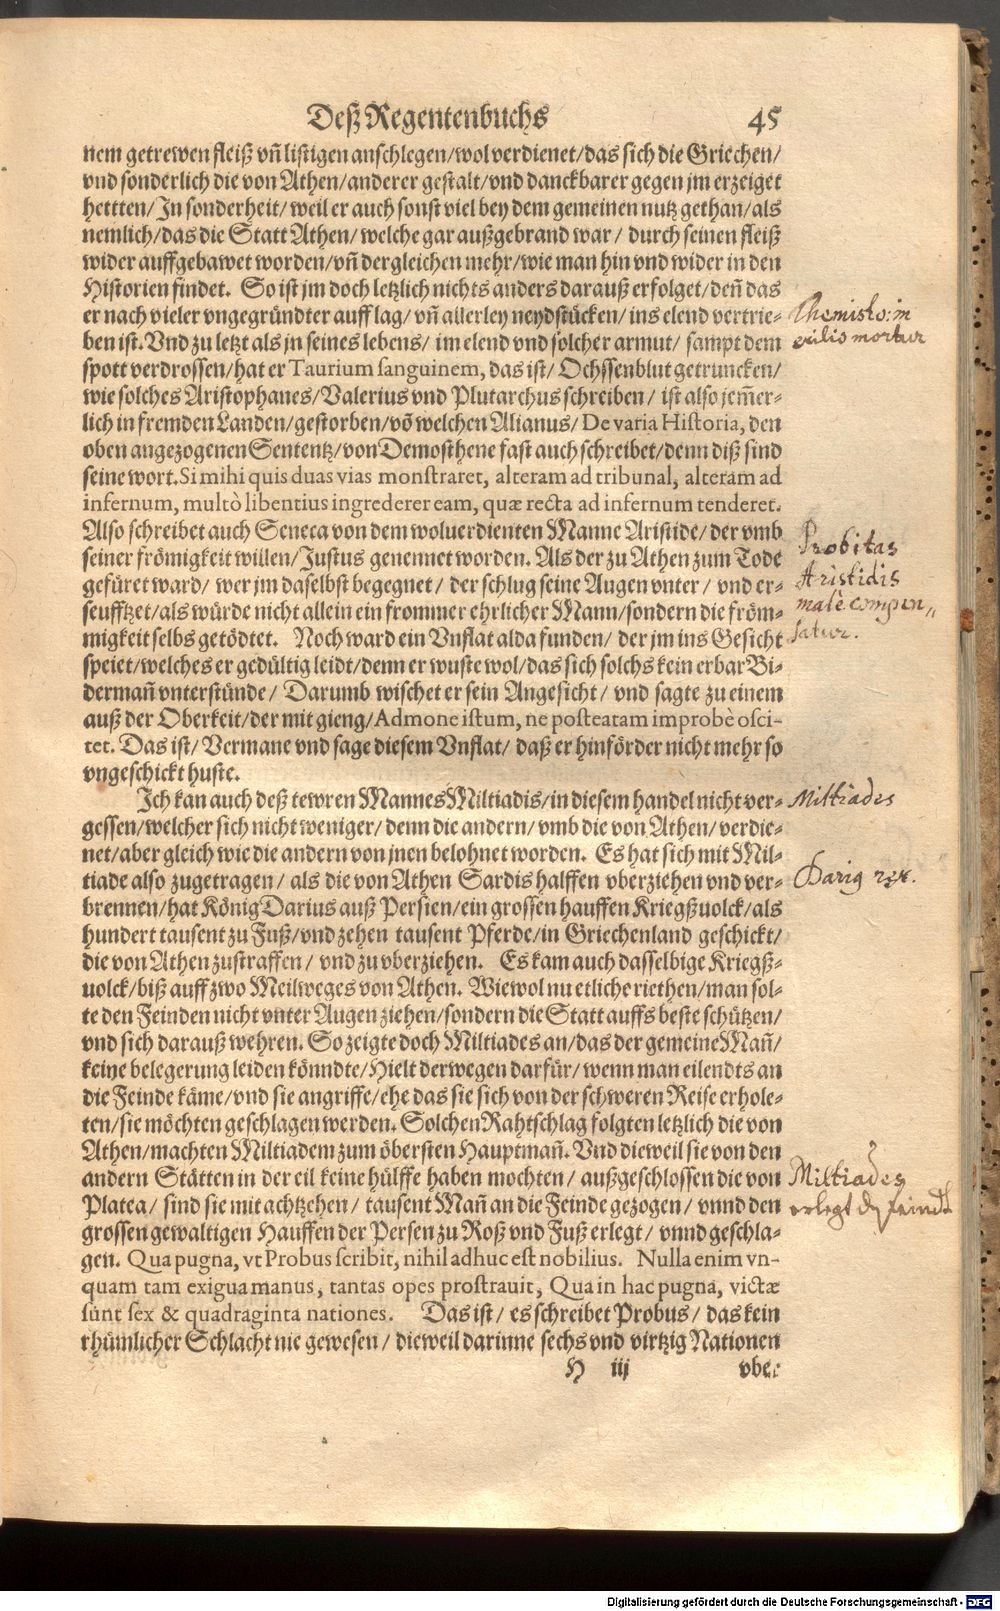 Deß Regentenbuchs 45
nem getrewen fleiß vñ listigen anschlegen/wol verdienet/das sich die Griechen/
vnd sonderlich die von Athen/anderer gestalt/vnd danckbarer gegen jm erzeiget
hettten/In sonderheit/weil er auch sonst viel bey dem gemeinen nutz gethan/als
nemlich/das die Statt Athen/welche gar außgebrand war/ durch seinen fleiß
wider auffgebawet worden/vñ dergleichen mehr/wie man hin vnd wider in den
Historien findet. So ist jm doch letzlich nichts anders darauß erfolget/deñ das
er nach vieler vngegründter aufflag/vñ allerley neydstücken/ins elend vertrie-
ben ist. Vnd zu letzt als jn seines lebens/ im elend vnd solcher armut/ sampt dem
spott verdrossen/hat er Taurium sanguinem, das ist/ Ochssenblut getruncken/
wie solches Aristophanes/Valerius vnd Plutarchus schreiben/ ist also jem̃er-
lich in fremden Landen/gestorben/võ welchen Alianus/ De varia Historia, den
oben angezogenen Sententz/von Demosthene fast auch schreibet/denn diß sind
seine wort. Si mihi quis duas vias monstraret, alteram ad tribunal, alteram ad
infernum, multò libentius ingrederer eam, quæ recta ad infernum tenderet.
Also schreibet auch Seneca von dem woluerdienten Manne Aristide/der vmb
seiner frömigkeit willen/Justus genennet worden. Als der zu Athen zum Tode
gefüret ward/ wer jm daselbst begegnet/ der schlug seine Augen vnter/ vnd er-
seufftzet/als würde nicht allein ein frommer ehrlicher Mann/sondern die fröm-
migkeit selbs getödtet. Noch ward ein Vnflat alda funden/ der jm ins Gesicht
speiet/welches er gedültig leidt/denn er wuste wol/das sich solchs kein erbar Bi-
dermañ vnterstünde/ Darumb wischet er sein Angesicht/ vnd sagte zu einem
auß der Oberkeit/der mit gieng/Admone istum, ne posteatam improbè osci-
tet. Das ist/ Vermane vnd sage diesem Vnflat/ daß er hinförder nicht mehr so
vngeschickt huste.
Ich kan auch deß tewren Mannes Miltiadis/in diesem handel nicht ver-
gessen/welcher sich nicht weniger/denn die andern/vmb die von Athen/verdie-
net/aber gleich wie die andern von jnen belohnet worden. Es hat sich mit Mil-
tiade also zugetragen/ als die von Athen Sardis halffen vberziehen vnd ver-
brennen/hat König Darius auß Persien/ein grossen hauffen Kriegßuolck/als
hundert tausent zu Fuß/vnd zehen tausent Pferde/in Griechenland geschickt/
die von Athen zustraffen/ vnd zu vberziehen. Es kam auch dasselbige Kriegß-
uolck/biß auff zwo Meilweges von Athen. Wiewol nu etliche riethen/man sol-
te den Feinden nicht vnter Augen ziehen/sondern die Statt auffs beste schützen/
vnd sich darauß wehren. So zeigte doch Miltiades an/das der gemeine Mañ/
keine belegerung leiden könndte/Hielt derwegen darfür/wenn man eilendts an
die Feinde käme/vnd sie angriffe/ehe das sie sich von der schweren Reise erhole-
ten/sie möchten geschlagen werden. Solchen Rahtschlag folgten letzlich die von
Athen/machten Miltiadem zum öbersten Hauptmañ. Vnd dieweil sie von den
andern Stätten in der eil keine hülffe haben mochten/ außgeschlossen die von
Platea/ sind sie mit achtzehen/ tausent Mañ an die Feinde gezogen/ vnnd den
grossen gewaltigen Hauffen der Persen zu Roß vnd Fuß erlegt/ vnnd geschla-
gen. Qua pugna, vt Probus scribit, nihil adhuc est nobilius. Nulla enim vn-
quam tam exigua manus, tantas opes prostrauit, Qua in hac pugna, victæ
sunt sex & quadraginta nationes. Das ist/ es schreibet Probus/ das kein
rhümlicher Schlacht nie gewesen/ dieweil darinne sechs vnd virtzig Nationen
H iij vber
Themisto: in
exilio moritur
Probitas
Aristidis
malè compen„
satur.
Miltiades
Dariq rex.
Miltiades
erlegt dz feindt
Digitalisierung gefördert durch die Deutsche Forschungsgemeinschaft - DFG